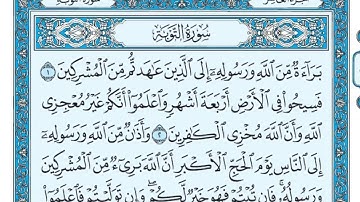 سورة التوبة
بَرَآءَةٌ مِّنَ ٱللَّهِ وَرَسُولِهِۦٓ إِلَى ٱلَّذِينَ عَٰهَدتُّم مِّنَ ٱلْمُشْرِكِينَ ١
فَسِيحُوا۟ فِى ٱلْأَرْضِ أَرْبَعَةَ أَشْهُرٍ وَٱعْلَمُوٓا۟ أَنَّكُمْ غَيْرُ مُعْجِزِى
ٱللَّهِ وَأَنَّ ٱللَّهَ مُخْزِى ٱلْكَٰفِرِينَ ٢ وَأَذَٰنٌ مِّنَ ٱللَّهِ وَرَسُولِهِۦٓ
إِلَى ٱلنَّاسِ يَوْمَ ٱلْحَجِّ ٱلْأَكْبَرِ أَنَّ ٱللَّهَ بَرِىٓءٌ مِّنَ ٱلْمُشْرِكِينَ
وَرَسُولُهُۥ فَإِن تُبْتُمْ فَهُوَ خَيْرٌ لَّكُمْ وَإِن تَوَلَّيْتُمْ فَٱعْلَمُوٓا۟